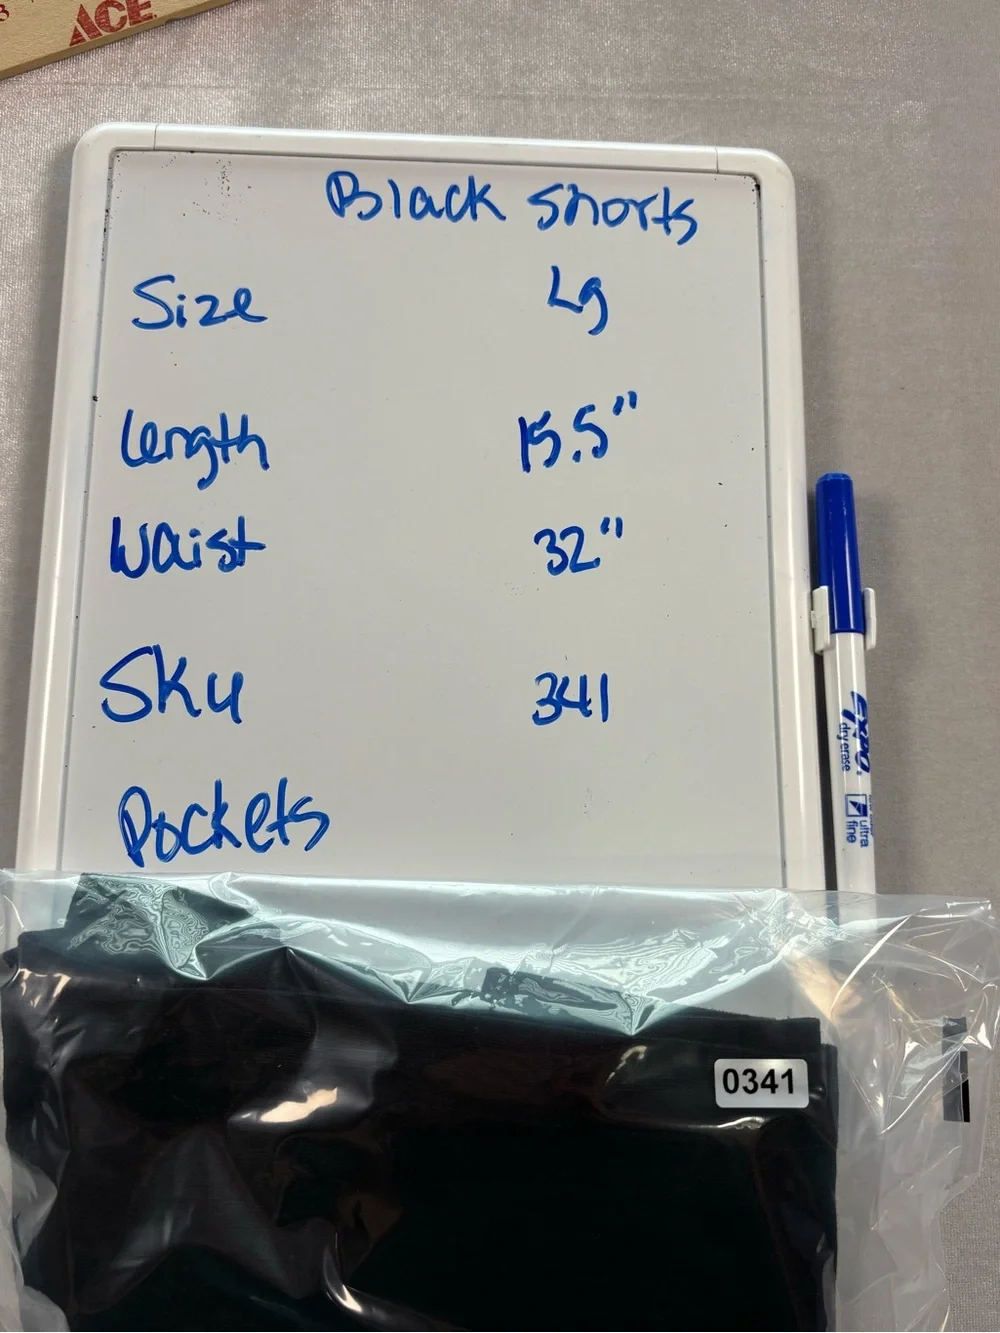 ACE
Black Shorts
Size Lg
Length 15.5"
Waist 32"
Sku 341
Pockets
EXPO
dry erase
ultra
fine
0341